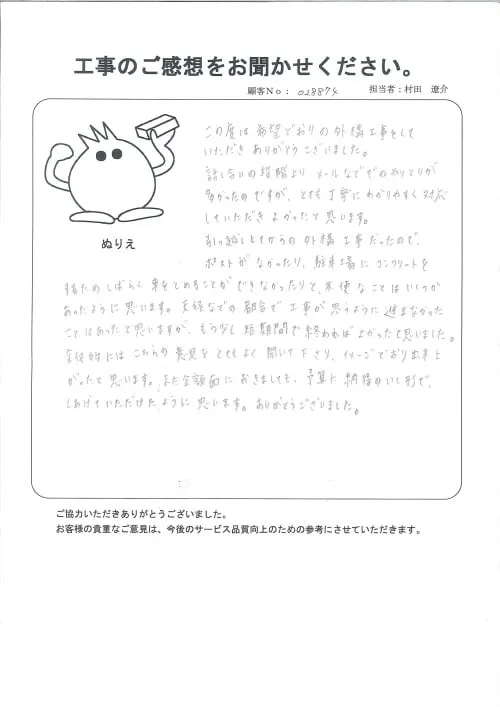 工事のご感想をお聞かせください。
顧客No: 028874 担当者:村田 遼介
ぬりえ
この度は希望どおりの外構工事をして
いただきありがとうございました。
話し合いの段階より メールなどでのやりとりが
多かったのですが、とても丁寧にわかりやすく対応
していただきよかったと思います。
引っ越しとてからの外構工事だったので、
ポストがなかったり、駐車場にコンクリートを
するためしばらく車をとめることができなかったりと、不便なことはいくつか
あったように思います。天候などの都合で工事が思うように進まなかった
ことはあったと思いますが、もう少し短期間で終われば上かったと思いました。
全体的にはこちらの意見をとてもよく聞いて下さり、イメージどおり出来上
がったと思います。また金額面におきましても、予算に納得のいく形で、
しあげていただけたように思います。ありがとうございました。
ご協力いただきありがとうございました。
お客様の貴重なご意見は、今後のサービス品質向上のための参考にさせていただきます。